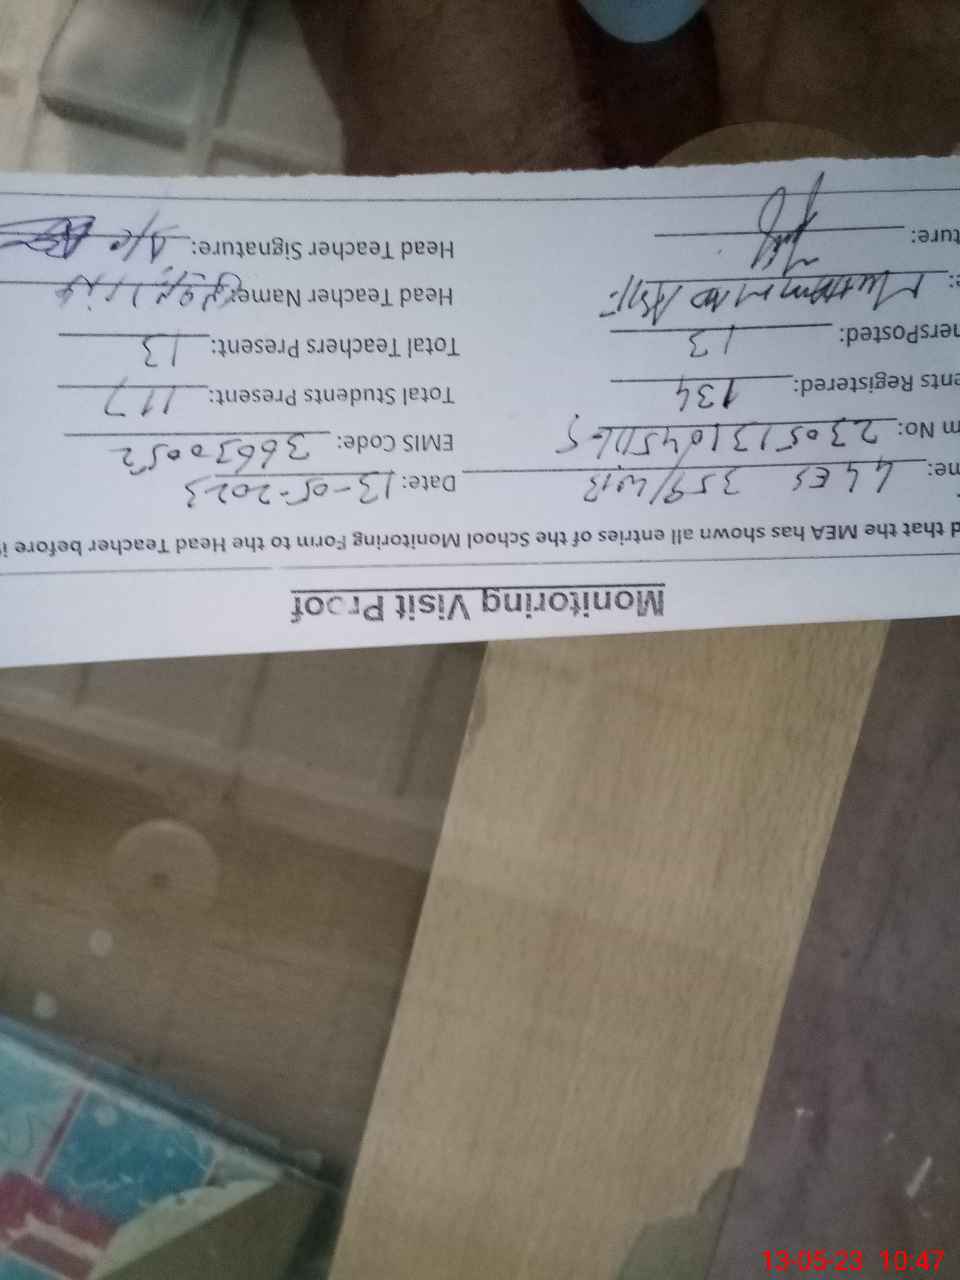 Monitoring Visit Proof
d that the MEA has shown all entries of the School Monitoring Form to the Head Teacher before i
me: 359/W.B Date: 13-05-2023
m No: EMIS Code: 36630052
ents Registered: 134 Total Students Present: 117
hersPosted: 13 Total Teachers Present: 13
e: Muhammad Asif Head Teacher Name:
ture: Head Teacher Signature:
13-05-23 10:47